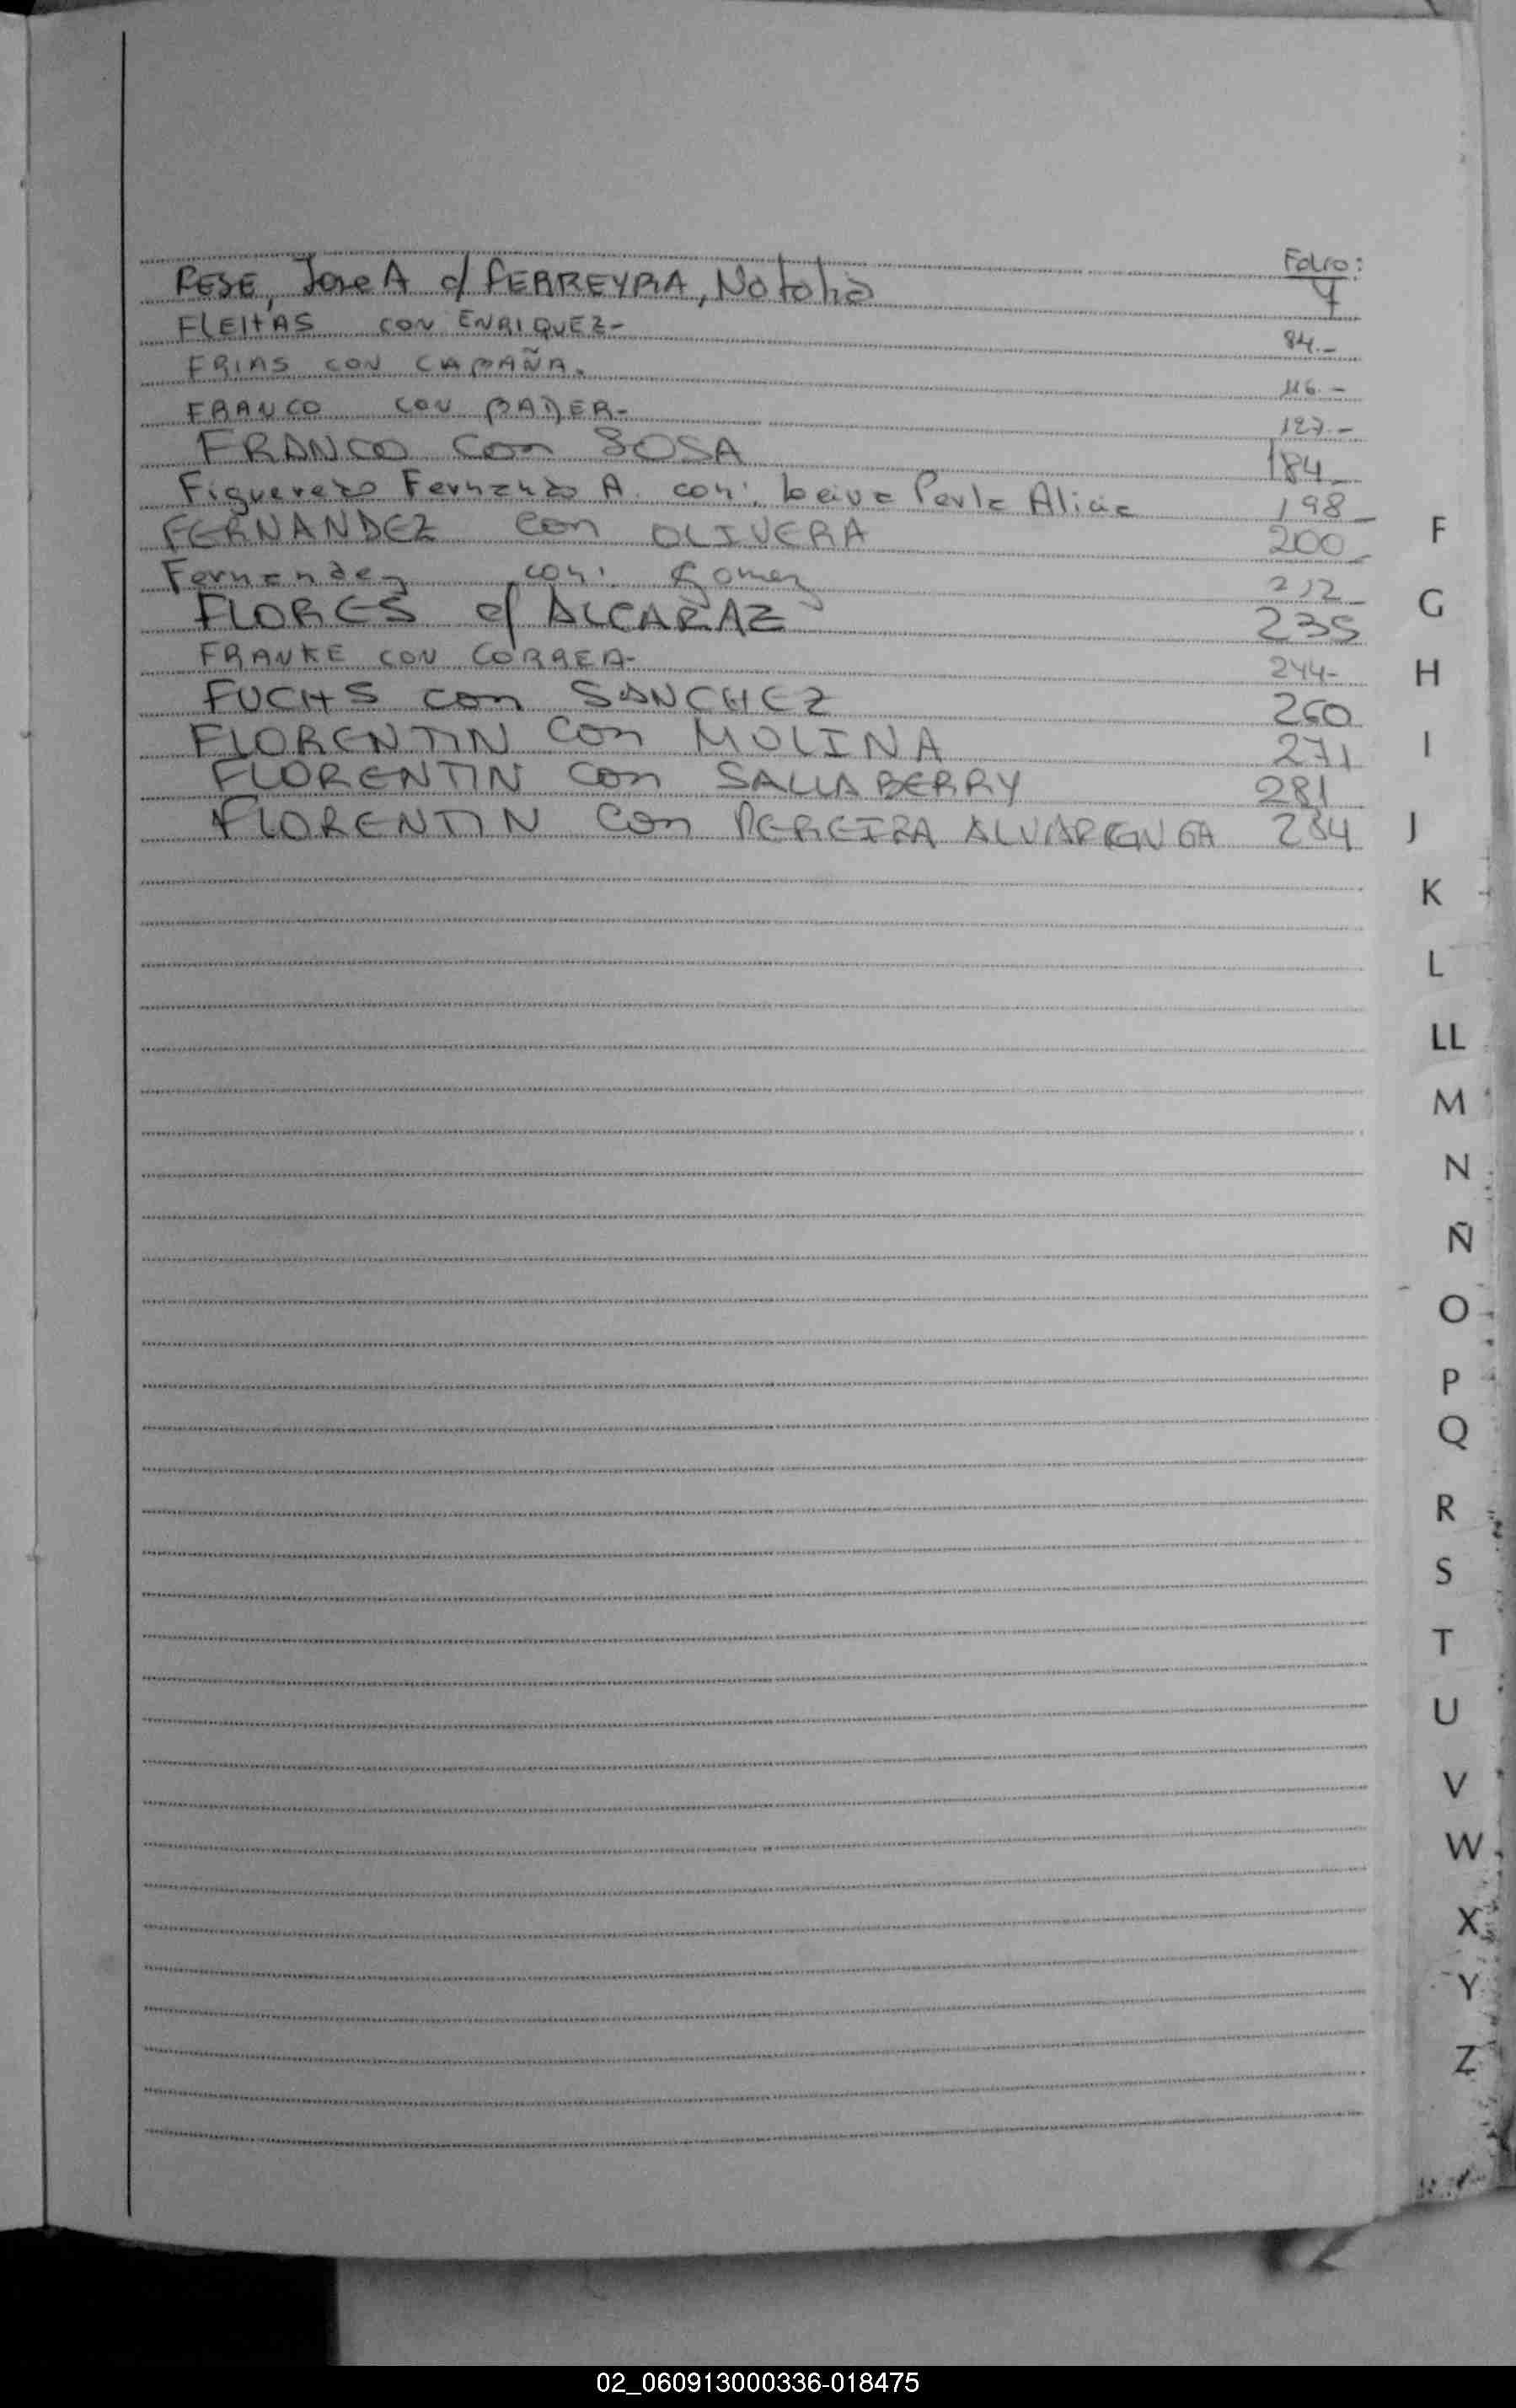 Folio:
FESE, Jose A c/ FERREYRA, Natalia 7
FLEITAS con ENRIQUEZ- 84.-
FRIAS con CABAÑA. 116.-
FRANCO con BADER- 127.-
FRANCO con SOSA 184_
Figueredo Fernando A. con: Leiva Perla Alicia 198_
FERNANDEZ con OLIVERA 200_
Fernandez con: Gomez 212_
FLORES c/ ALCARAZ 235
FRANKE CON CORREA- 244-
FUCHS con SANCHEZ 260
FLORENTIN con MOLINA 271
FLORENTIN con SALLABERRY 281
FLORENTIN con PEREIRA ALVARENGA 284
F
G
H
I
J
K
L
LL
M
N
Ñ
O
P
Q
R
S
T
U
V
W
X
Y
Z
02_060913000336-018475